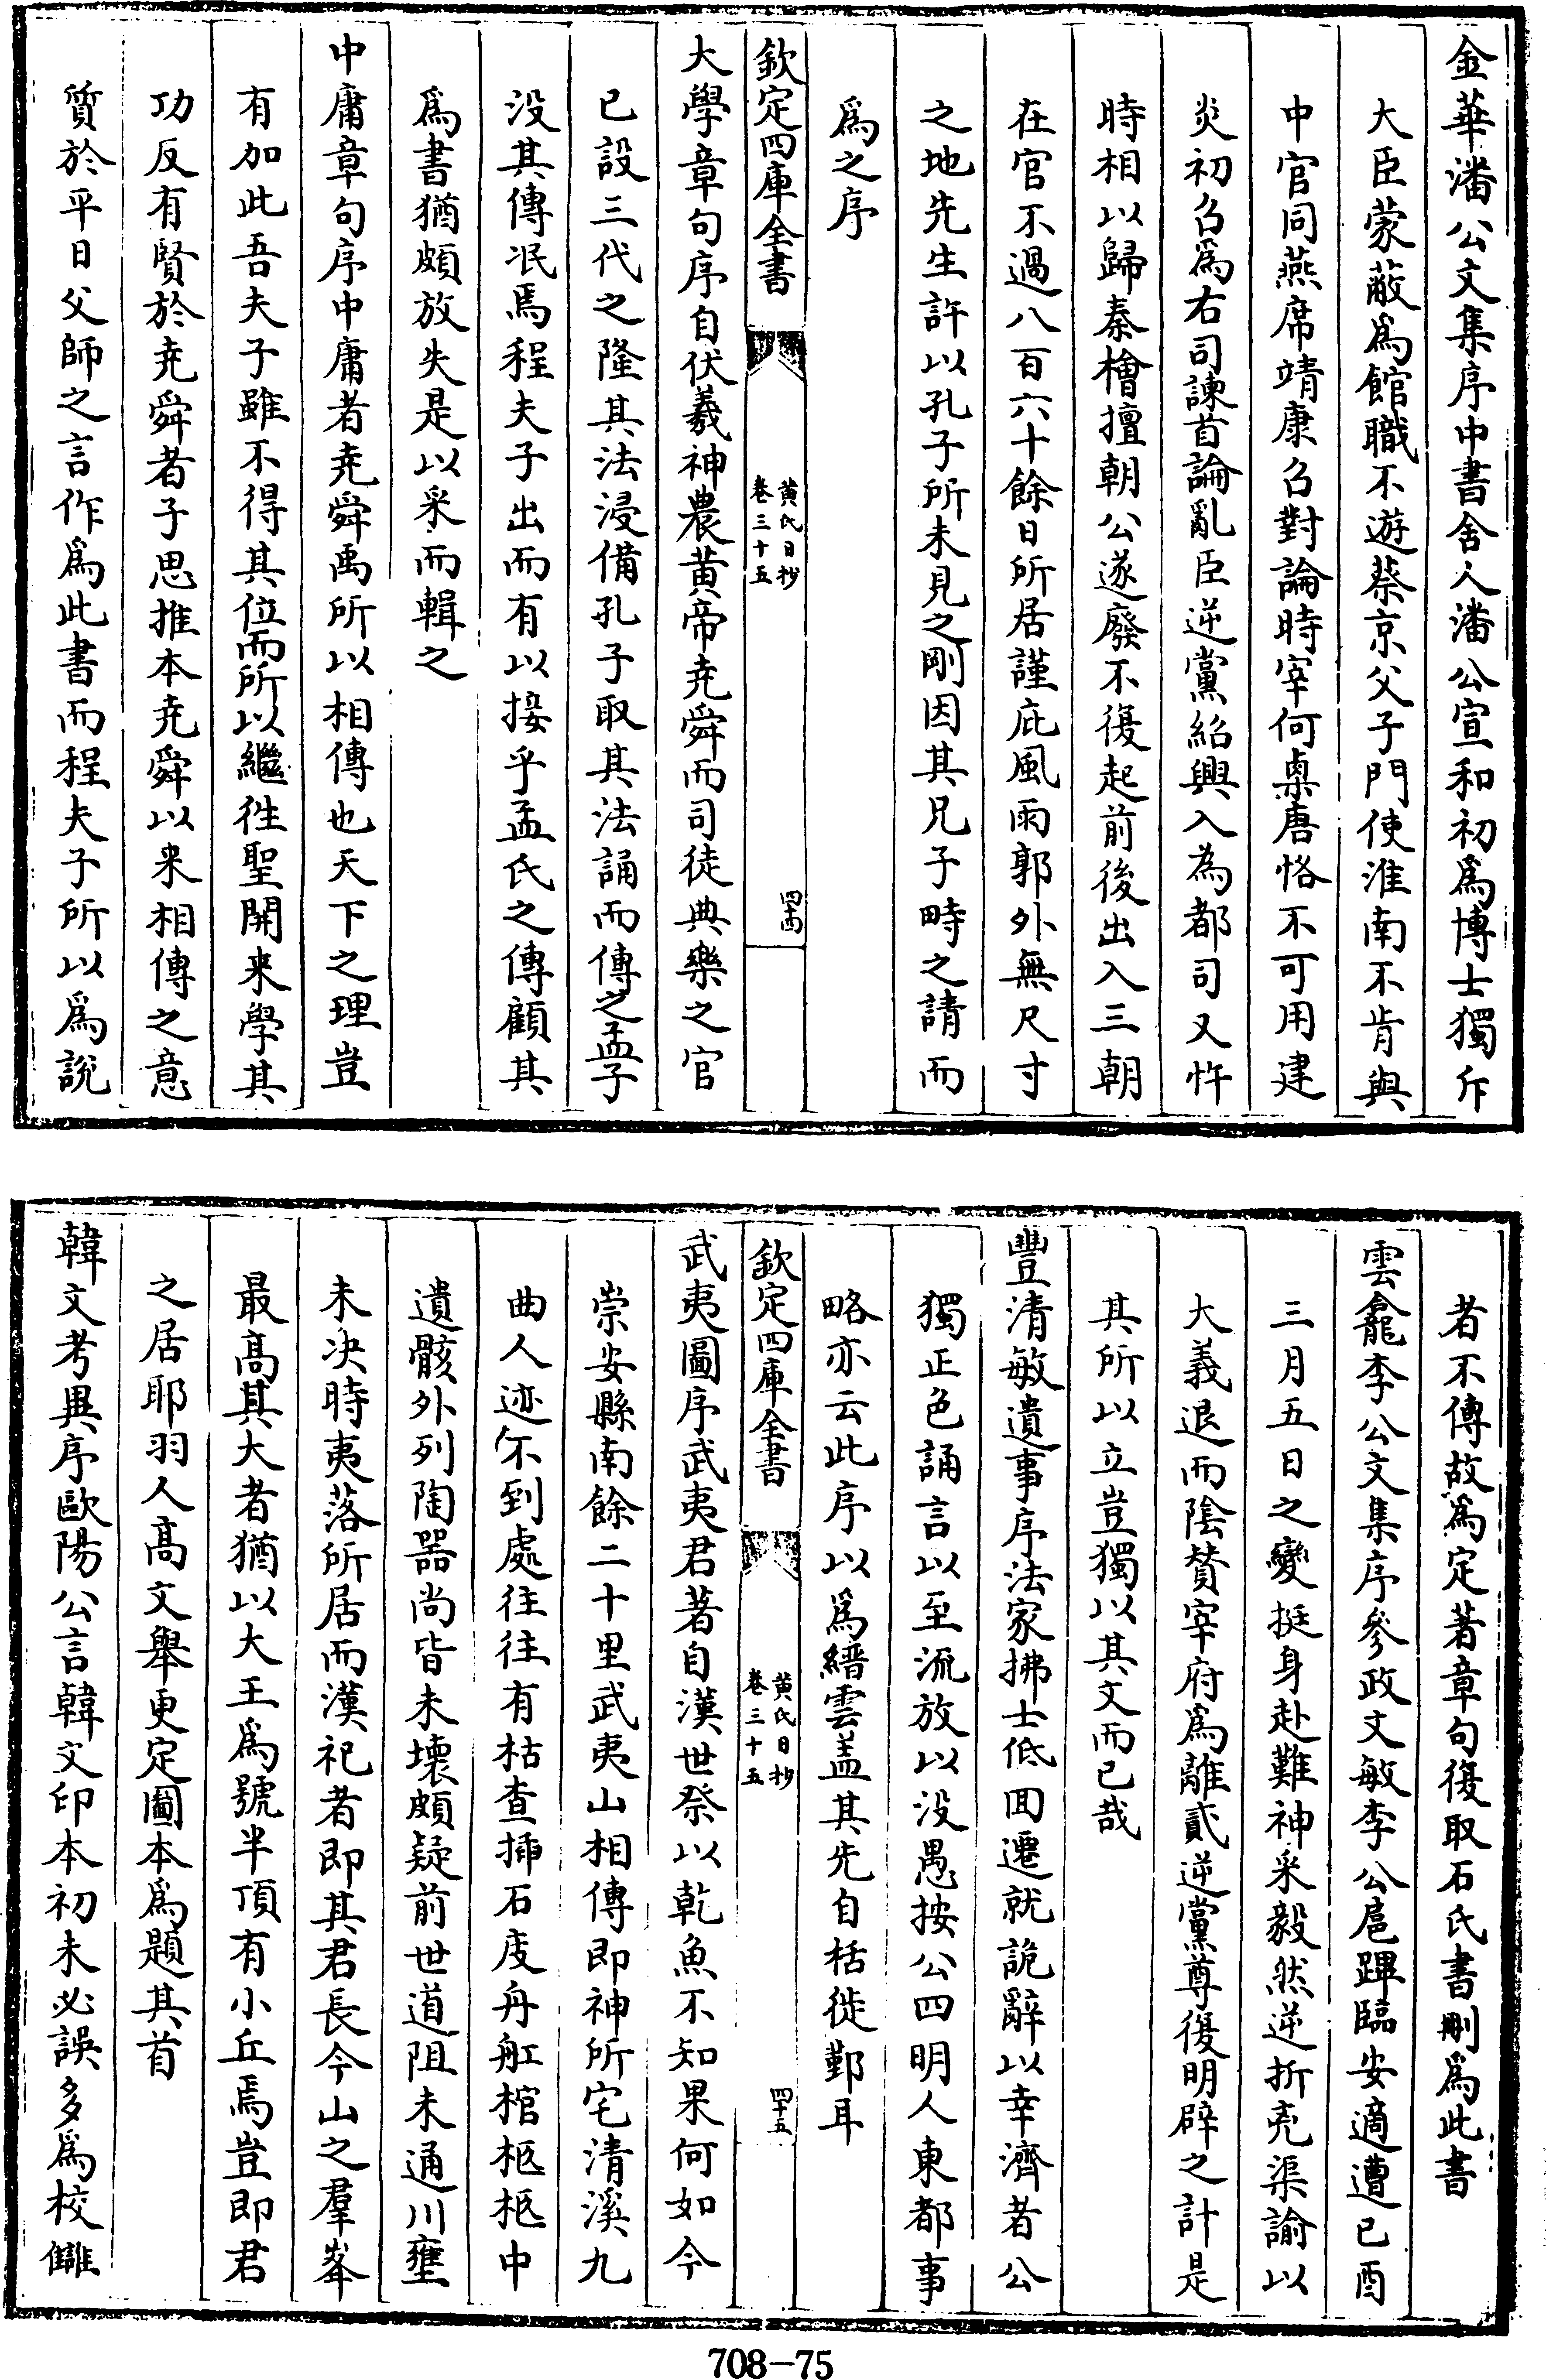 金華潘公文集序中書舍人潘公宣和初爲博士獨斥
大臣蒙蔽爲館職不遊蔡京父子門使淮南不肯與
中官同燕席靖康召對論時宰何㮚唐恪不可用建
炎初召爲右司諫首論亂臣逆黨紹興入為都司又忤
時相以歸秦檜擅朝公遂廢不復起前後出入三朝
在官不過八百六十餘日所居謹庇風雨郭外無尺寸
之地先生許以孔子所未見之剛因其兄子畤之請而
爲之序
欽定四庫全書
黄氏日抄
卷三十五
四十四
大學章句序自伏羲神農黄帝尭舜而司徒典樂之官
已設三代之隆其法浸備孔子取其法誦而傳之孟子
没其傳泯焉程夫子出而有以接乎孟氏之傳顧其
爲書猶頗放失是以采而輯之
中庸章句序中庸者尭舜禹所以相傳也天下之理豈
有加此吾夫子雖不得其位而所以繼徃聖開来學其
功反有賢於尭舜者子思推本尭舜以来相傳之意
質於平日父師之言作爲此書而程夫子所以爲說
者不傳故爲定著章句復取石氏書刪爲此書
雲龕李公文集序參政文敏李公扈蹕臨安適遭已酉
三月五日之變挺身赴難神采毅然逆折兇渠諭以
大義退而陰賛宰府爲離貳逆黨尊復明辟之計是
其所以立豈獨以其文而已哉
豐清敏遺事序法家拂士低回遷就詭辭以幸濟者公
獨正色誦言以至流放以没愚按公四明人東都事
略亦云此序以爲縉雲盖其先自栝徙鄞耳
欽定四庫全書
黄氏日抄
卷三十五
四十五
武夷圖序武夷君著自漢世祭以乾魚不知果何如今
崇安縣南餘二十里武夷山相傳即神所宅清溪九
曲人迹不到處往往有枯查揷石庋舟舡棺柩柩中
遺骸外列陶器尚皆未壊頗疑前世道阻未通川壅
未决時夷落所居而漢祀者即其君長今山之羣峯
最髙其大者猶以大王爲號半頂有小丘焉豈即君
之居耶羽人髙文舉更定圖本爲題其首
韓文考異序歐陽公言韓文印本初未必誤多爲校讎
708-75